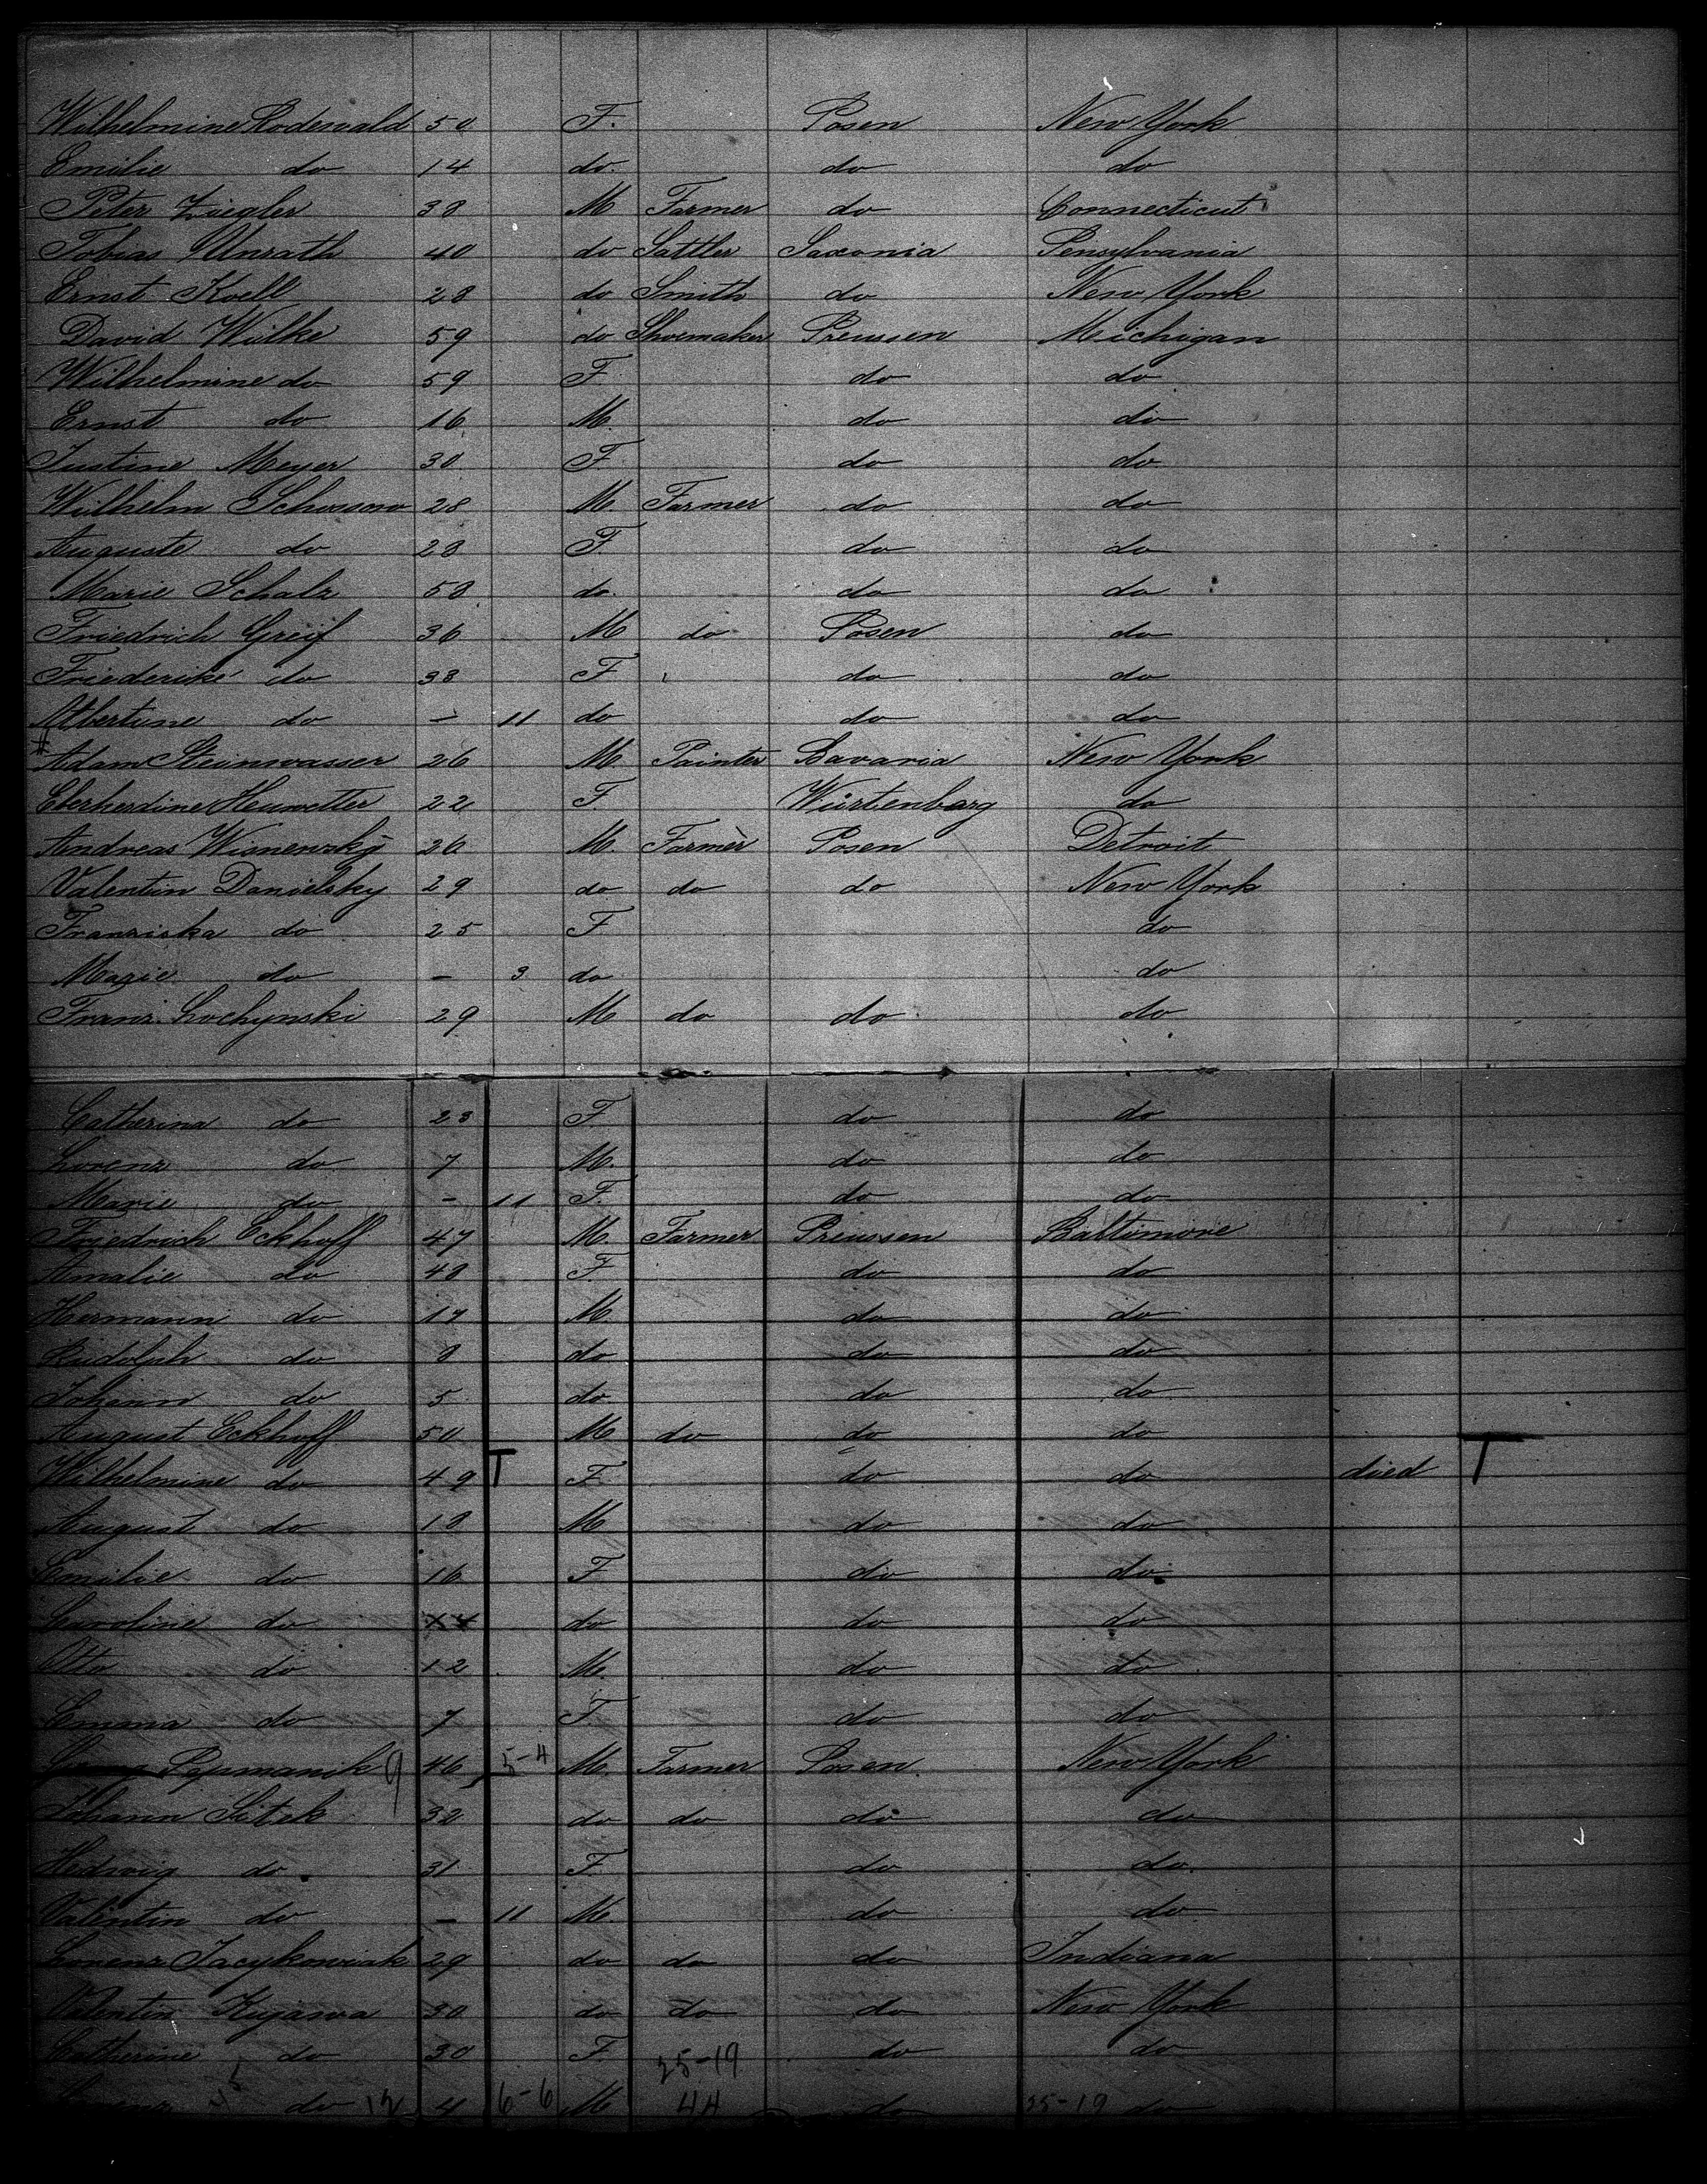 Wilhelmine Rodewald 50 F. Posen New York
Emilie do 14 do. do do
Peter Ziegler 38 M Farmer do Connecticut
Tobias Unrath 40 do Sattler Saxonia Pensylvania
Ernst Koell 28 do Smith do New York
David Wilke 59 do Shoemaker Preussen Michigan
Wilhelmine do 59 F do do
Ernst do 16 M. do do
Justine Meyer 30 F do do
Wilhelm 28 M Farmer do do
Auguste do 28 F do do
Marie Schalz 58 do. do do
Friedrich Greif 36 M do Posen do
Friederike do 38 F do do
Albertine do - 11 do do do
Adam Steinwasser 26 M Painter Bavaria New York
22 F Würtenberg do
Andreas Wisnewsky 26 M. Farmer Posen Detroit
Valentin Danielsky 29 do do do New York
Franziska do 25 F do
Marie do - 3 do do
Franz Lochynski 29 M do do do
Catherina do 23 F do do
Lorenz do 7 M. do do
Marie do - 11 F. do do
Friedrich Eckhoff 47 M. Farmer Preussen Baltimore
Amalie do 48 F. do do
Hermann do 17 M. do do
Rudolph do 8 do do do
Johann do 5 do. do do
August Eckhoff 50 M do do do
Wilhelmine do 49 T F. do do died T
August do 18 M do do
Emilie do 16 F do do
Caroline do do do do
Otto do 12 M. do do
Emma do 7 F. do do
46 5-4 M. Farmer Posen New York
Johann Sitek 32 do do do do
Hedwig do 31 F. do do
Valentin do - 11 M. do do
Lorenz Jacykowiak 29 do do do Indiana
Valentin Kujawa 30 do do do New York
Catherine do 30 F. do do
25-19
do 12 4 6-6 M 44 do 25-19 do